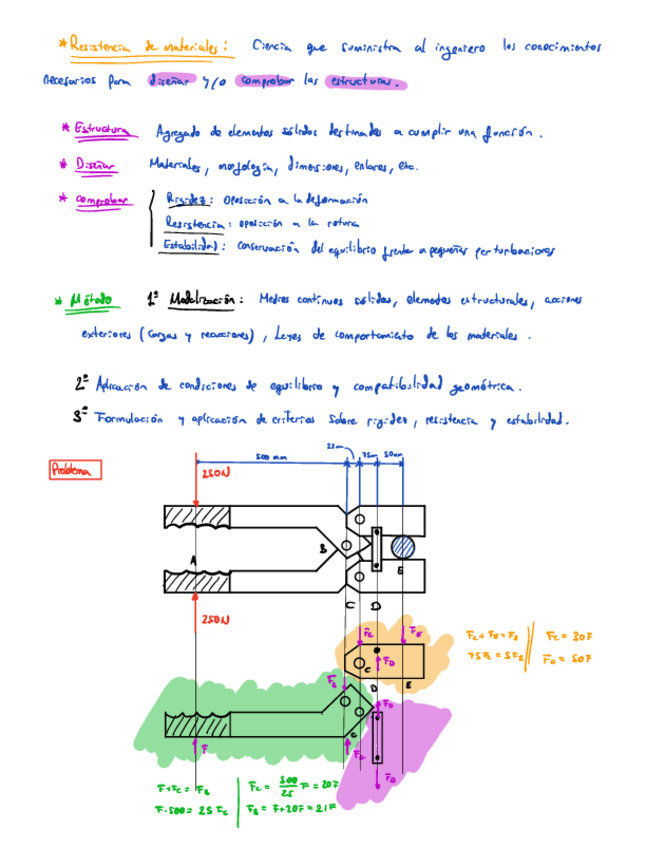 * Resistencia de materiales: Ciencia que suministra al ingeniero los conocimientos
necesarios para diseñar y/o comprobar las estructuras.
* Estructura Agregado de elementos sólidos destinados a cumplir una función.
* Diseñar Materiales, morfología, dimensiones, enlaces, etc.
* Comprobar Rigidez: Oposición a la deformación
Resistencia: oposición a la rotura
Estabilidad: Conservación del equilibrio frente a pequeñas perturbaciones
* Método 1º Modelización: Medios continuos sólidos, elementos estructurales, acciones
exteriores (Cargas y reacciones), Leyes de comportamiento de los materiales.
2º Aplicación de condiciones de equilibrio y compatibilidad geométrica.
3º Formulación y aplicación de criterios sobre rigidez, resistencia y estabilidad.
Problema
500 mm
250N
A
B
E
C D
250N
Fc
FD
C
D E
Fc + FE = FD
Fc = 30F
FD = 50F
FB
FD
C
F
Fc
FD
F+Fc = FB
F·500 = 25 Fc
Fc = 500/25 F = 20F
FB = F+20F = 21F